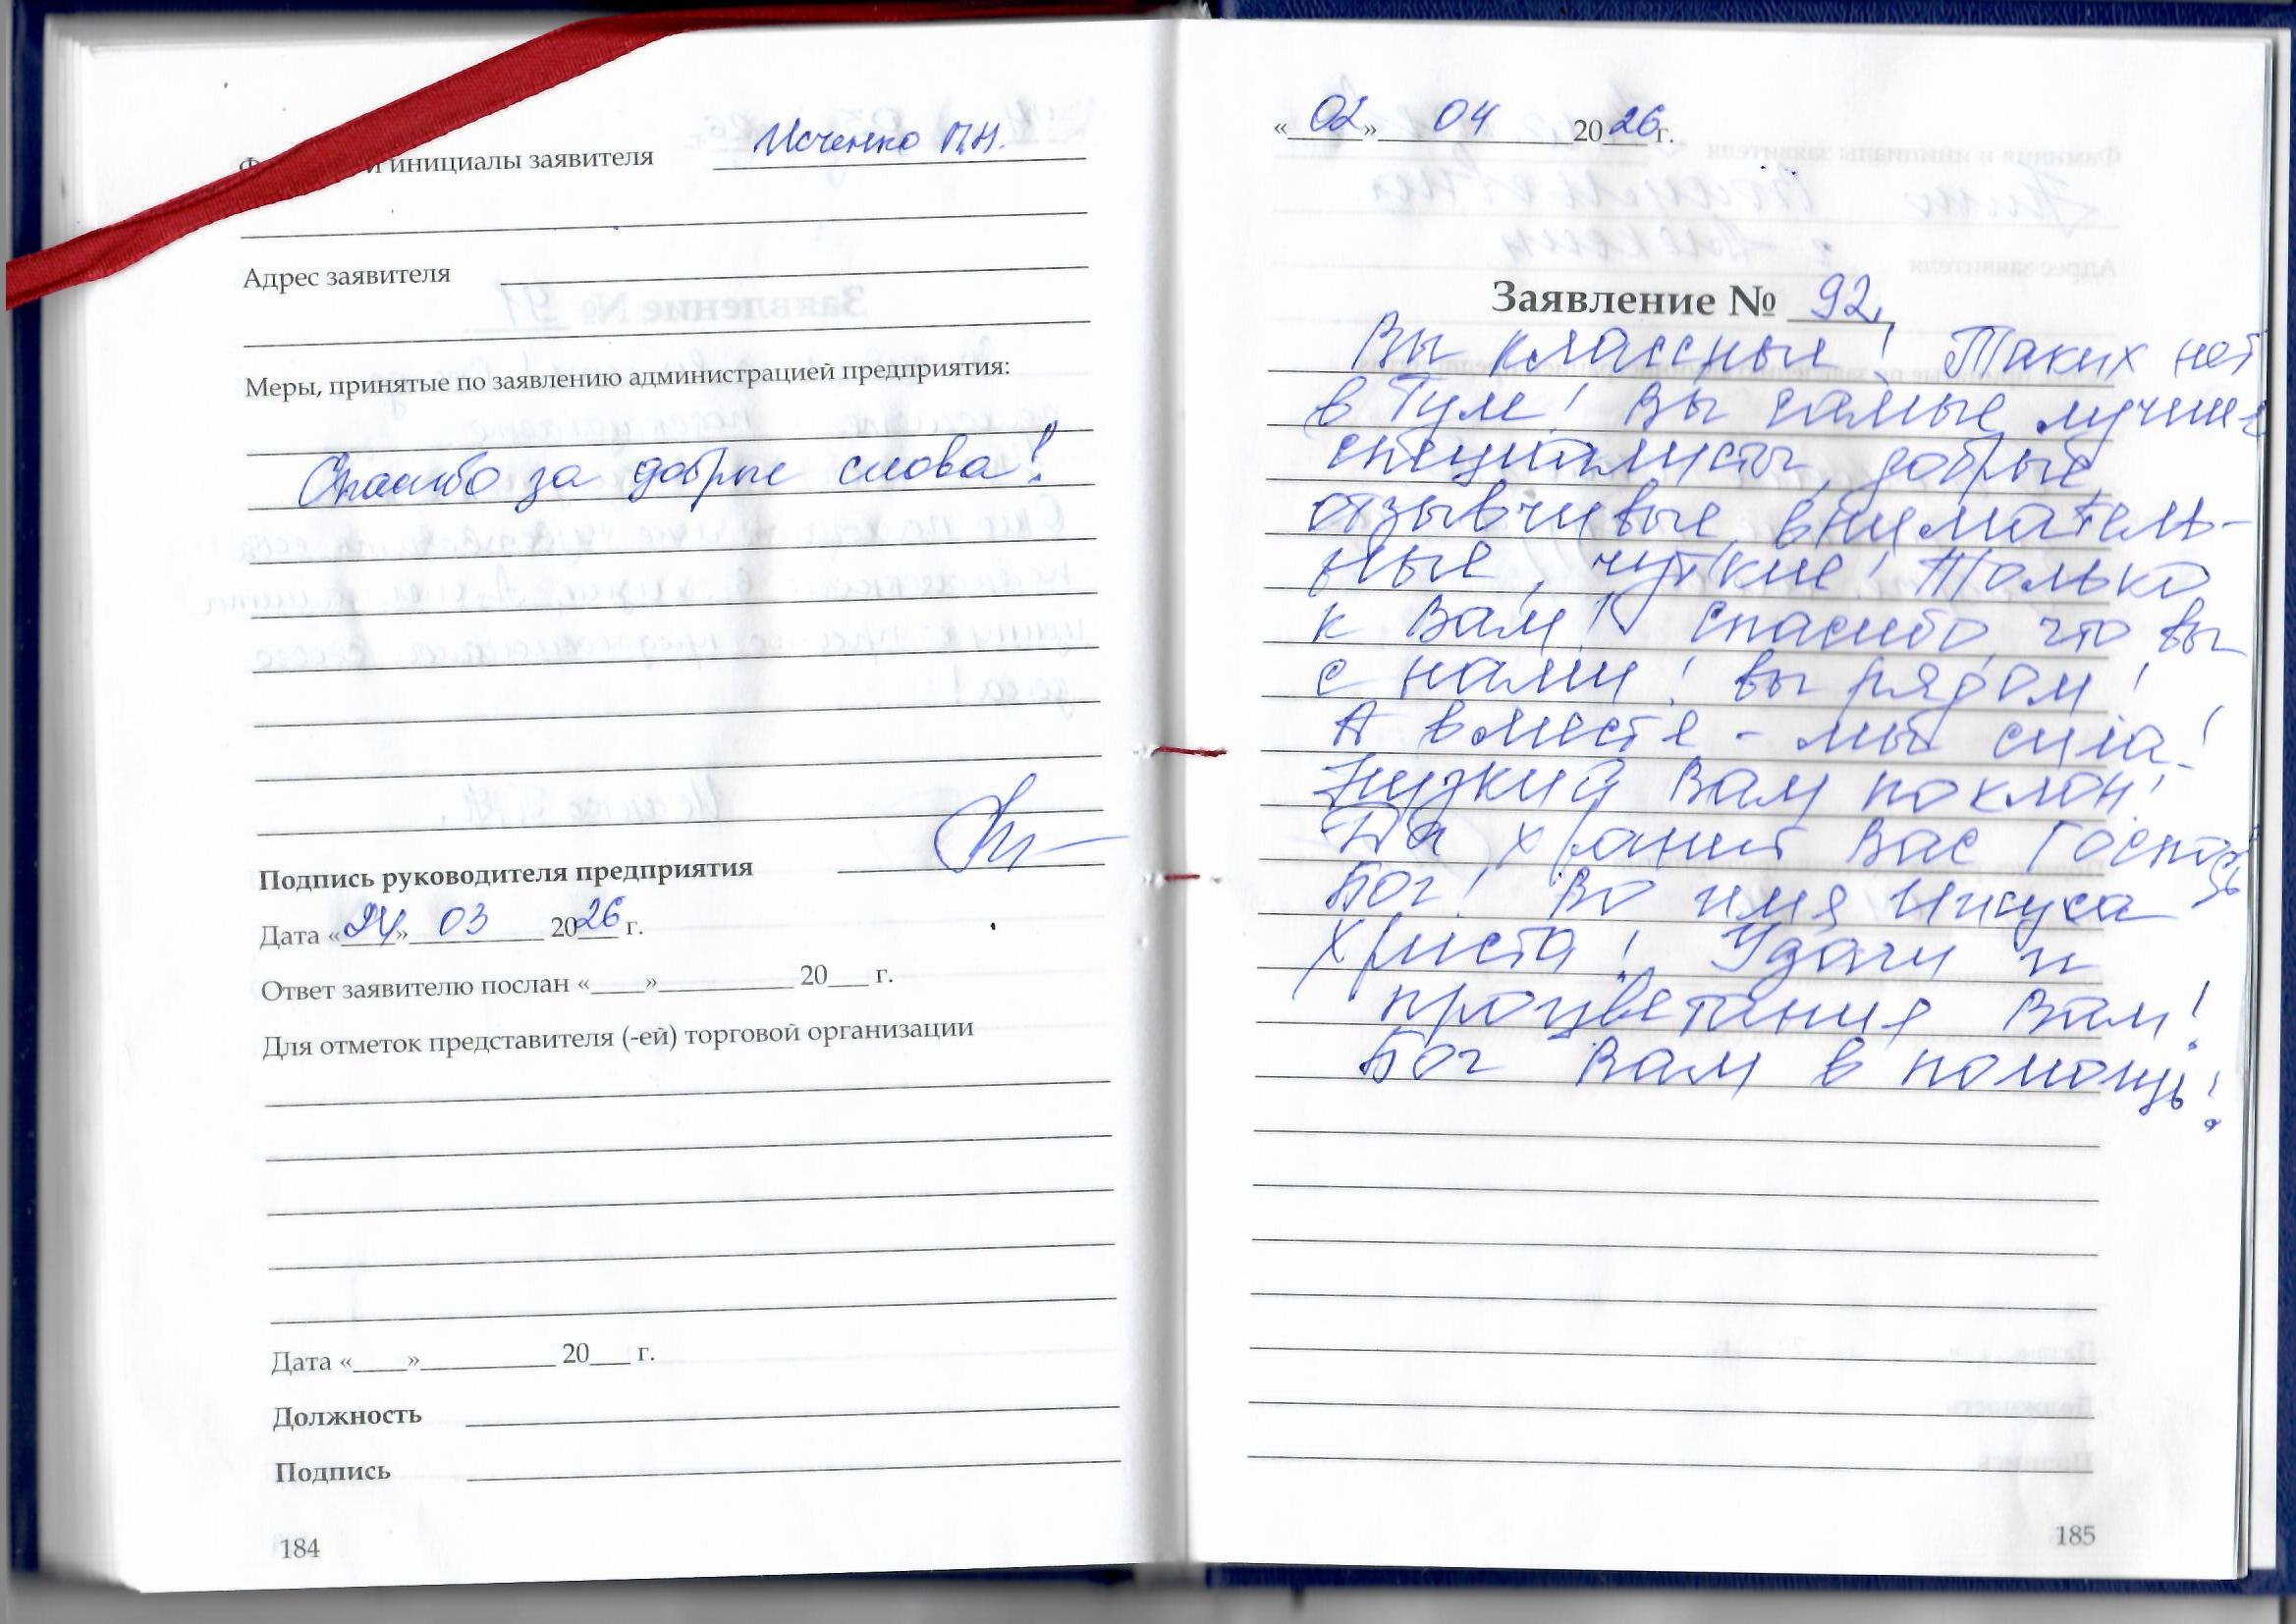 и инициалы заявителя Исченко П.Н.
Адрес заявителя
Меры, принятые по заявлению администрацией предприятия:
Спасибо за добрые слова!
Подпись руководителя предприятия
Дата «24» 03 2026 г.
Ответ заявителю послан «____»__________ 20___ г.
Для отметок представителя (-ей) торговой организации
Дата «____»__________ 20___ г.
Должность
Подпись
184
«02» 04 2026г.
Заявление № 92
Вы классные! Таких нет
в Туле! Вы самые лучшие
специалисты, добрые,
отзывчивые, вниматель-
ные, чуткие! Только
к Вам! Спасибо, что вы
с нами! Вы рядом!
А вместе - мы сила!
Низкий Вам поклон!
Да хранит Вас Господь
Бог! Во имя Иисуса
Христа! Удачи и
процветания Вам!
Бог Вам в помощь!
185